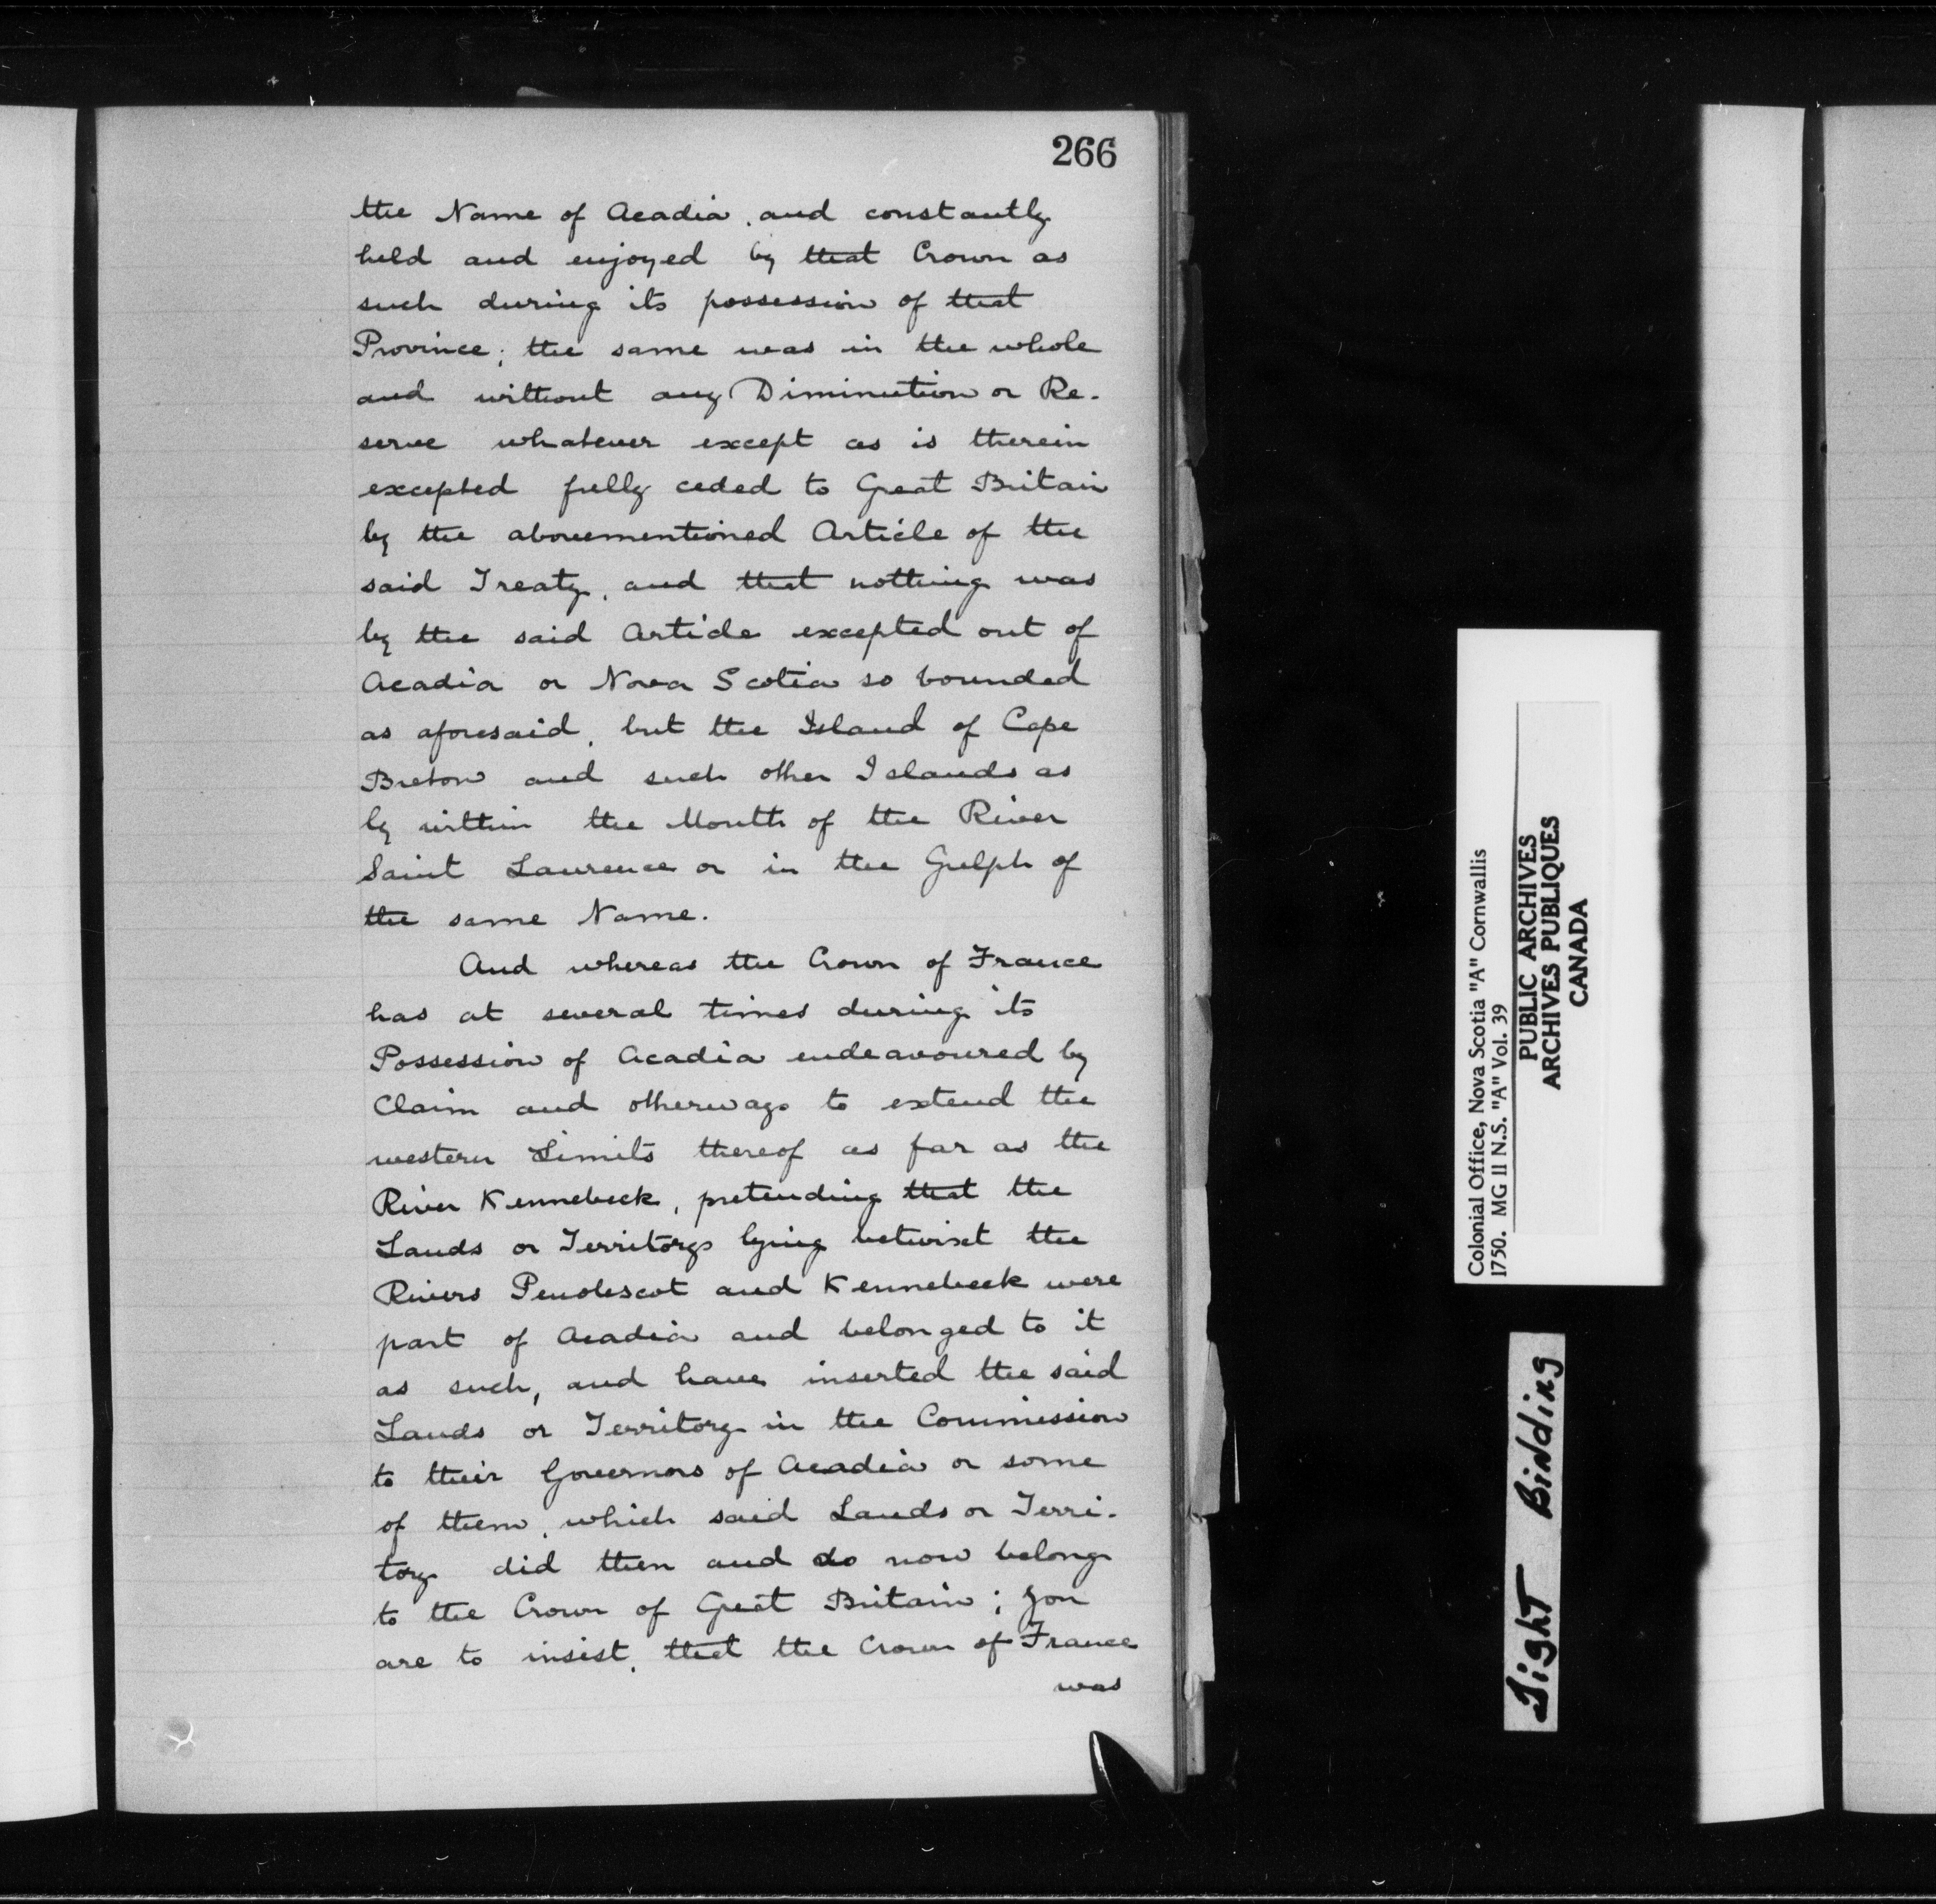 266
the Name of Acadia, and constantly
held and enjoyed by that Crown as
such during its possession of that
Province; the same was in the whole
and without any Diminution or Re-
serve whatever except as is therein
excepted fully ceded to Great Britain
by the abovementioned Article of the
said Treaty, and that nothing was
by the said Article excepted out of
Acadia or Nova Scotia so bounded
as aforesaid, but the Island of Cape
Breton and such other Islands as
ly within the Mouth of the River
Saint Laurence or in the Gulph of
the same Name.
And whereas the Crown of France
has at several times during its
Possession of Acadia endeavoured by
Claim and otherways to extend the
western Limits thereof as far as the
River Kennebeck, pretending that the
Lands or Territorys lying betwixt the
Rivers Penobscot and Kennebeck were
part of Acadia and belonged to it
as such, and have inserted the said
Lands or Territory in the Commission
to their Governors of Acadia or some
of them, which said Lands or Terri-
tory did then and do now belong
to the Crown of Great Britain; you
are to insist, that the Crown of France
was
Colonial Office, Nova Scotia "A" Cornwallis
1750. MG 11 N.S. "A" Vol. 39
PUBLIC ARCHIVES
ARCHIVES PUBLIQUES
CANADA
Tight Binding